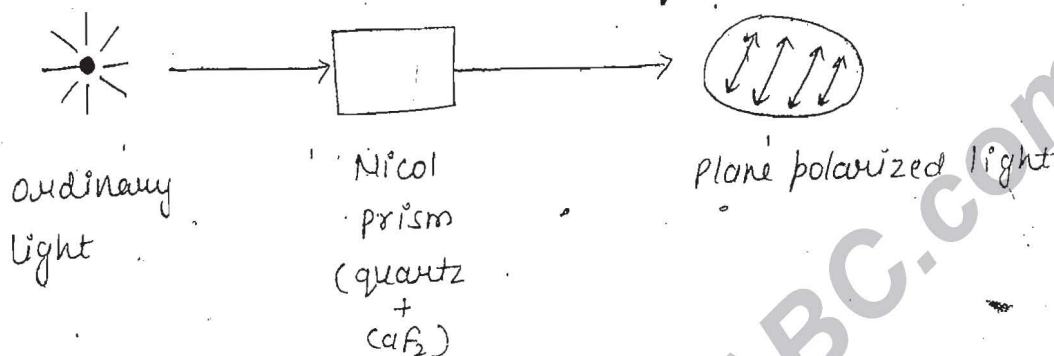 ordinary
light
Nicol
prism
(quartz
+
CaF2)
Plane polarized light
BC.com